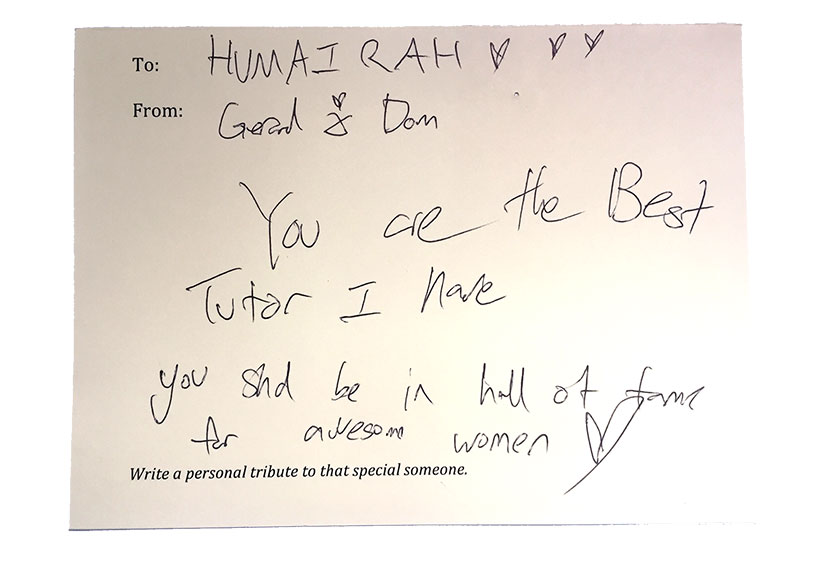 To: HUMAIRAH ♡ ♡ ♡
From: Gerard & Dom
You are the Best
Tutor I have
you shd be in hall of fame
for awesom women ♡
Write a personal tribute to that special someone.